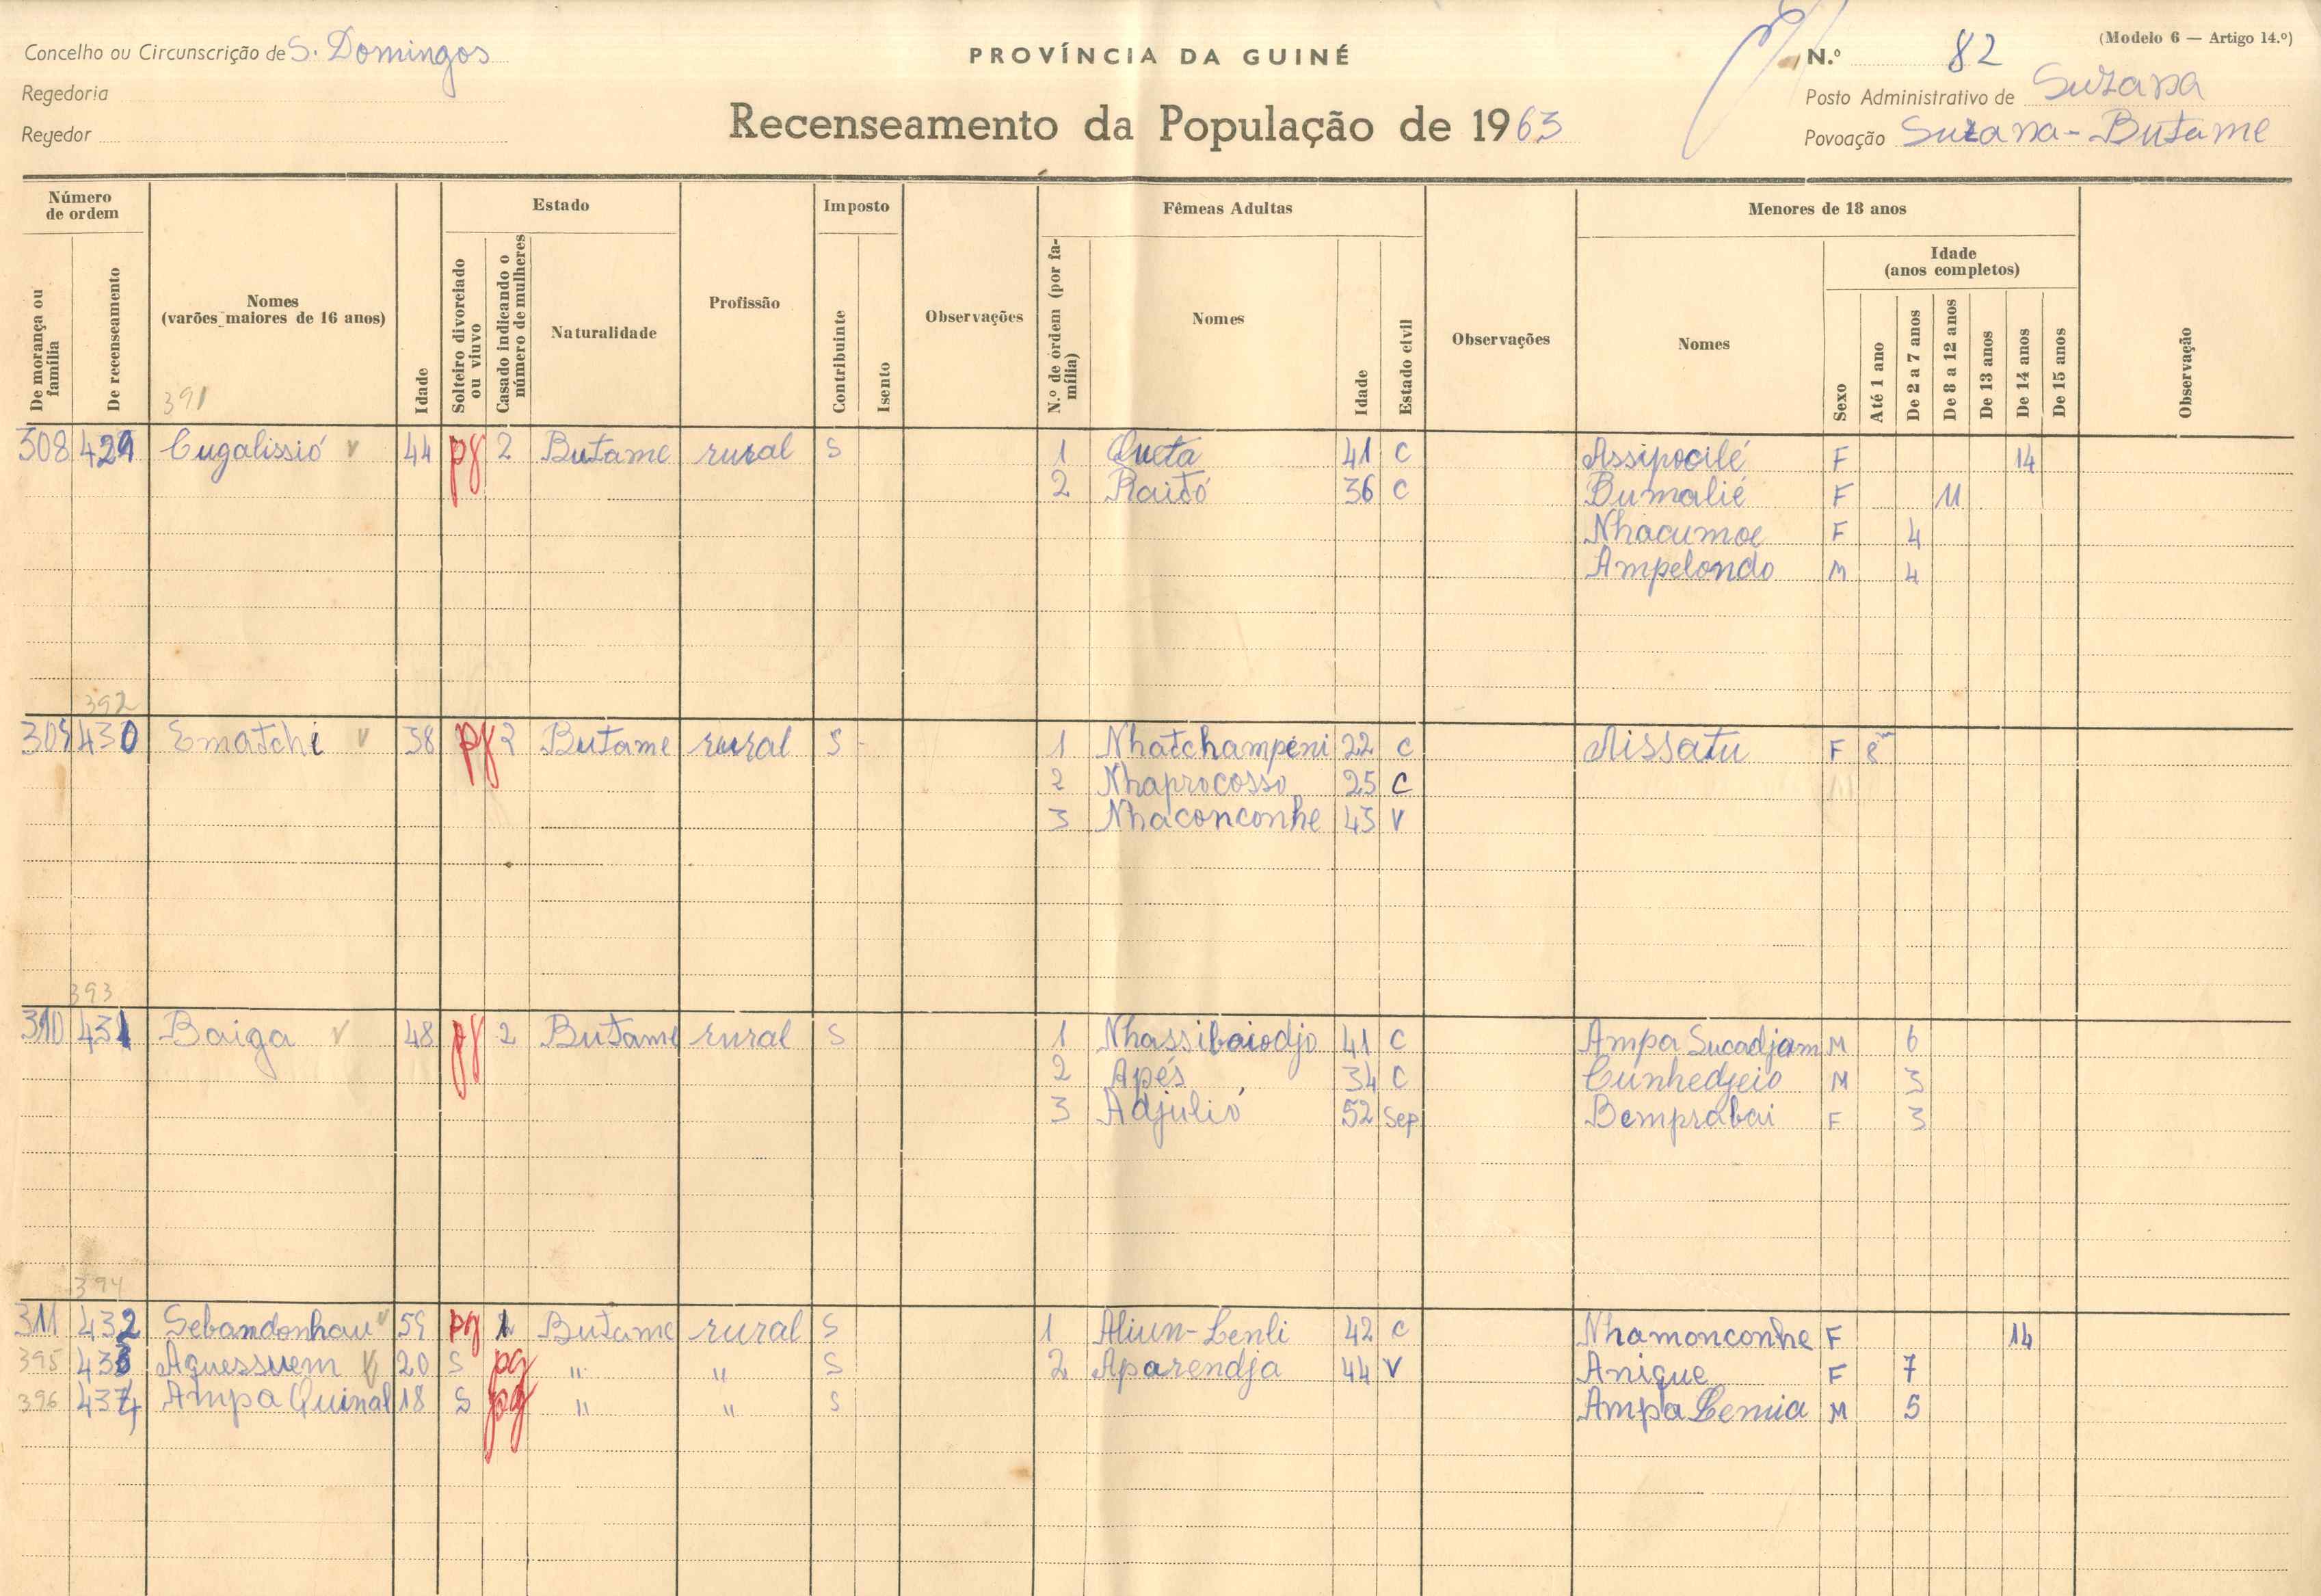 Concelho ou Circunscrição de S. Domingos
PROVÍNCIA DA GUINÉ
N.º 82
(Modelo 6 — Artigo 14.º)
Regedoria
Posto Administrativo de Suzana
Regedor
Recenseamento da População de 1963
Povoação Suzana - Butame
Número de ordem
Estado
Imposto
Fêmeas Adultas
Menores de 18 anos
De morança ou família
De recenseamento
Nomes (varões maiores de 16 anos)
Idade
Solteiro divorciado ou viuvo
Casado indicando o número de mulheres
Naturalidade
Profissão
Contribuinte
Isento
Observações
N.º de ordem (por família)
Nomes
Idade
Estado civil
Observações
Nomes
Sexo
Idade (anos completos)
Até 1 ano
De 2 a 7 anos
De 8 a 12 anos
De 13 anos
De 14 anos
De 15 anos
Observação
391
308 429 Cugalissió v 44 pg 2 Butame rural S 1 Queta 41 C Assipocilé F 14
2 Raitó 36 C Bumalié F 11
Nhacumoe F 4
Ampelondo M 4
392
309 430 Ematchi v 38 pg 2 Butame rural S - 1 Nhatchampeni 22 C Aissatu F 8m
2 Nhaprocosso 25 C
3 Nhaconconhe 43 V
393
310 431 Baiga v 48 pg 2 Butame rural S 1 Nhassibaiodjo 41 C Ampa Sucadjam M 6
2 Apés 34 C Cunhedjeio M 3
3 Adjulió 52 Sep Bemprabai F 3
394
311 432 Sebandonhau v 59 pg 1 Butame rural S 1 Aliun-Lenli 42 C Nhamonconhe F 14
395 433 Aquessuem v 20 S pg " " S 2 Aparendja 44 V Anique F 7
396 434 Ampa Quinal 18 S pg " " S Ampa Lemia M 5